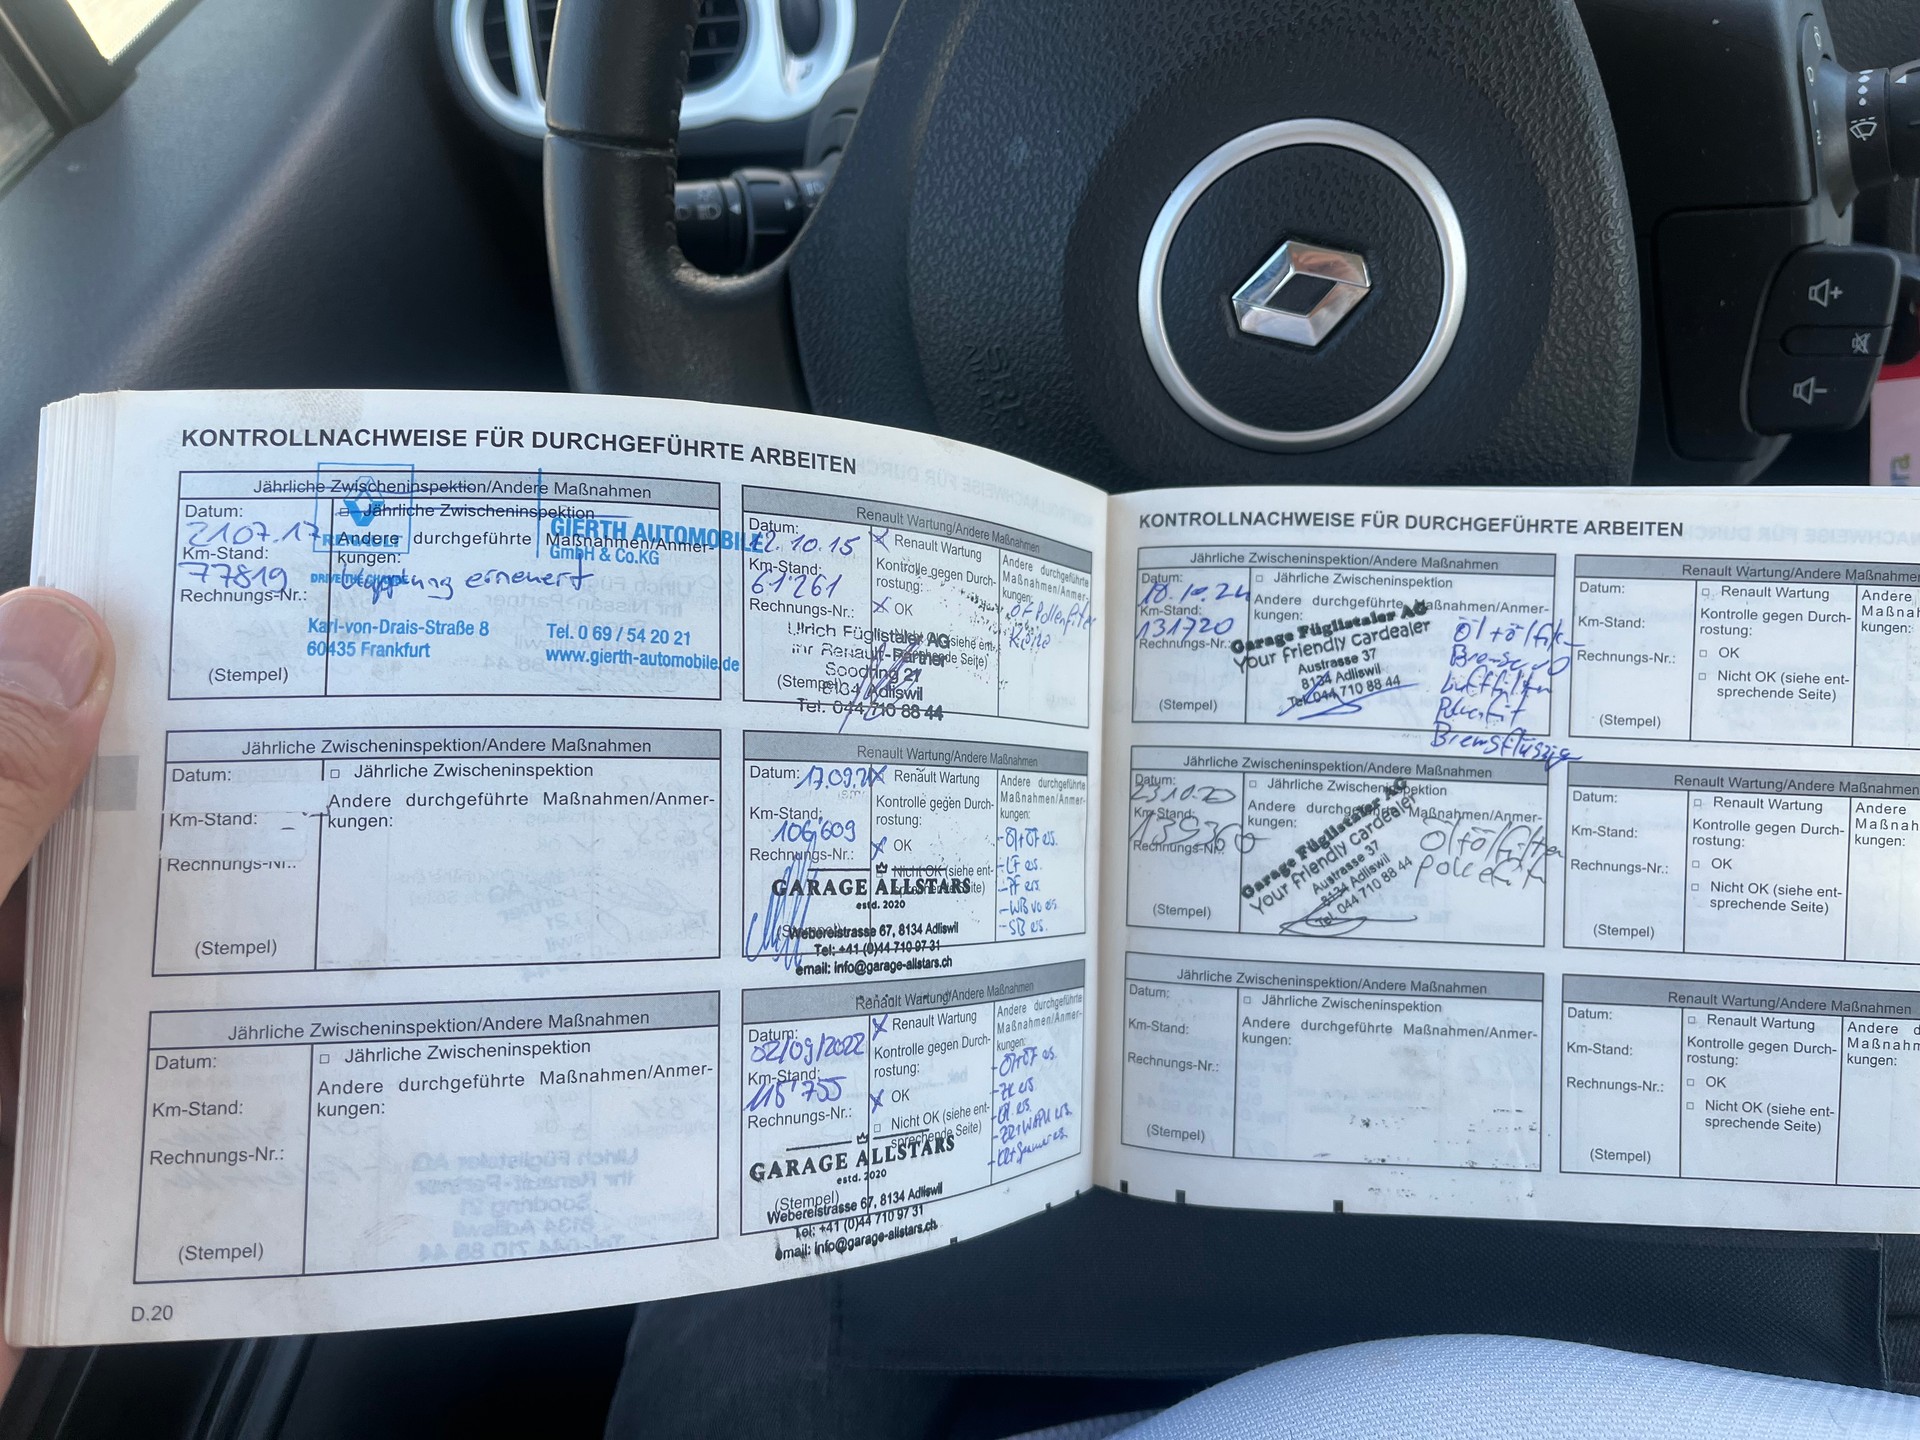 KONTROLLNACHWEISE FÜR DURCHGEFÜHRTE ARBEITEN
Jährliche Zwischeninspektion/Andere Maßnahmen
Datum:
21.07.17
Km-Stand:
77819
Rechnungs-Nr.:
(Stempel)
□ Jährliche Zwischeninspektion
Andere durchgeführte Maßnahmen/Anmer-
kungen:
Kupplung erneuert
RENAULT
DRIVE THE CHANGE
GIERTH AUTOMOBILE
GmbH & Co.KG
Karl-von-Drais-Straße 8
60435 Frankfurt
Tel. 0 69 / 54 20 21
www.gierth-automobile.de
Renault Wartung/Andere Maßnahmen
Datum:
12.10.15
Km-Stand:
61'261
Rechnungs-Nr.:
(Stempel)
Renault Wartung
Kontrolle gegen Durch-
rostung:
OK
Nicht OK (siehe ent-
sprechende Seite)
Andere durchgeführte
Maßnahmen/Anmer-
kungen:
Pollenfilter
Ulrich Füglistaler AG
Ihr Renault-Partner
Soodring 21
8134 Adliswil
Tel. 044 710 88 44
Jährliche Zwischeninspektion/Andere Maßnahmen
Datum:
Km-Stand:
Rechnungs-Nr.:
(Stempel)
□ Jährliche Zwischeninspektion
Andere durchgeführte Maßnahmen/Anmer-
kungen:
Renault Wartung/Andere Maßnahmen
Datum: 17.09.
Km-Stand:
106'609
Rechnungs-Nr.:
Renault Wartung
Kontrolle gegen Durch-
rostung:
OK
Nicht OK (siehe ent-
sprechende Seite)
Andere durchgeführte
Maßnahmen/Anmer-
kungen:
- Öl+ÖF es.
- LF es.
- PF es.
- WB vo es.
- SB es.
GARAGE ALLSTARS
estd. 2020
(Stempel)
Webereistrasse 67, 8134 Adliswil
Tel: +41 (0)44 710 97 31
email: info@garage-allstars.ch
Jährliche Zwischeninspektion/Andere Maßnahmen
Datum:
Km-Stand:
Rechnungs-Nr.:
(Stempel)
□ Jährliche Zwischeninspektion
Andere durchgeführte Maßnahmen/Anmer-
kungen:
Renault Wartung/Andere Maßnahmen
Datum:
02/09/2022
Km-Stand:
115'755
Rechnungs-Nr.:
Renault Wartung
Kontrolle gegen Durch-
rostung:
OK
□ Nicht OK (siehe ent-
sprechende Seite)
Andere durchgeführte
Maßnahmen/Anmer-
kungen:
- Öl+ÖF es.
GARAGE ALLSTARS
estd. 2020
(Stempel)
Webereistrasse 67, 8134 Adliswil
Tel: +41 (0)44 710 97 31
email: info@garage-allstars.ch
D.20
KONTROLLNACHWEISE FÜR DURCHGEFÜHRTE ARBEITEN
Jährliche Zwischeninspektion/Andere Maßnahmen
Datum:
18.10.24
Km-Stand:
131720
Rechnungs-Nr.:
(Stempel)
□ Jährliche Zwischeninspektion
Andere durchgeführte Maßnahmen/Anmer-
kungen:
Garage Füglistaler AG
Your friendly Cardealer
Austrasse 37
8134 Adliswil
Tel. 044 710 88 44
Öl + Ölfilt
Luftfilter
Bremsflüssig
Renault Wartung/Andere Maßnahmen
Datum:
Km-Stand:
Rechnungs-Nr.:
(Stempel)
□ Renault Wartung
Kontrolle gegen Durch-
rostung:
□ OK
□ Nicht OK (siehe ent-
sprechende Seite)
Andere
Maßnah
kungen:
Jährliche Zwischeninspektion/Andere Maßnahmen
Datum:
Km-Stand:
Rechnungs-Nr.:
(Stempel)
□ Jährliche Zwischeninspektion
Andere durchgeführte Maßnahmen/Anmer-
kungen:
Garage Füglistaler AG
Your friendly Cardealer
Austrasse 37
8134 Adliswil
Tel. 044 710 88 44
Öl+Ölfilter
Renault Wartung/Andere Maßnahmen
Datum:
Km-Stand:
Rechnungs-Nr.:
(Stempel)
□ Renault Wartung
Kontrolle gegen Durch-
rostung:
□ OK
□ Nicht OK (siehe ent-
sprechende Seite)
Andere
Maßnah
kungen:
Jährliche Zwischeninspektion/Andere Maßnahmen
Datum:
Km-Stand:
Rechnungs-Nr.:
(Stempel)
□ Jährliche Zwischeninspektion
Andere durchgeführte Maßnahmen/Anmer-
kungen:
Renault Wartung/Andere Maßnahmen
Datum:
Km-Stand:
Rechnungs-Nr.:
(Stempel)
□ Renault Wartung
Kontrolle gegen Durch-
rostung:
□ OK
□ Nicht OK (siehe ent-
sprechende Seite)
Andere d
Maßnahm
kungen: